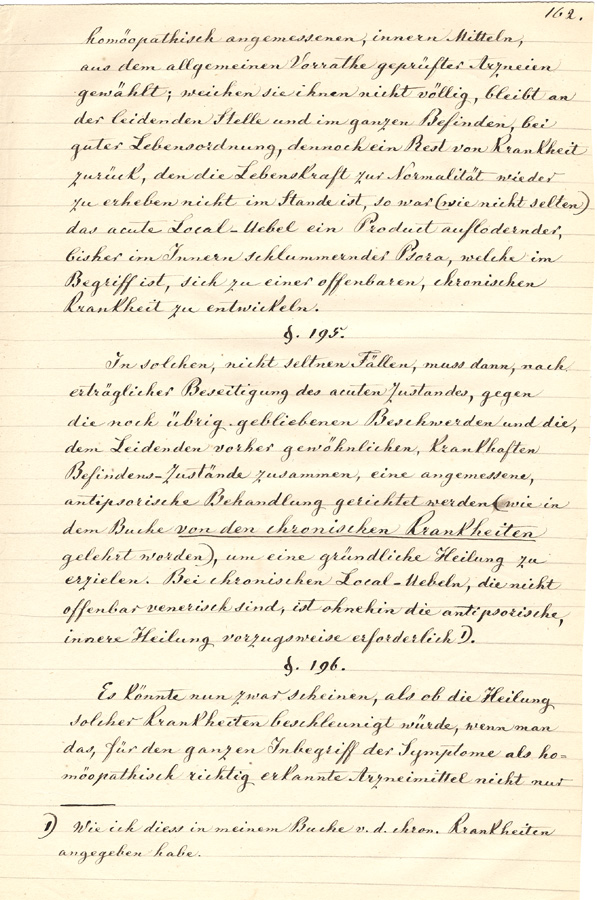 162.
homöopathisch angemessenen, innern Mitteln,
aus dem allgemeinen Vorrathe geprüfter Arzneien
gewählt; weichen sie ihnen nicht völlig, bleibt an
der leidenden Stelle und im ganzen Befinden, bei
guter Lebensordnung, dennoch ein Rest von Krankheit
zurück, den die Lebenskraft zur Normalität wieder
zu erheben nicht im Stande ist, so war (wie nicht selten)
das acute Local-Uebel ein Product auflodernder,
bisher im Innern schlummernder Psora, welche im
Begriff ist, sich zu einer offenbaren, chronischen
Krankheit zu entwickeln.
§. 195.
In solchen, nicht seltnen Fällen, muss dann, nach
erträglicher Beseitigung des acuten Zustandes, gegen
die noch übrig gebliebenen Beschwerden und die,
dem Leidenden vorher gewöhnlichen, krankhaften
Befindens-Zustände zusammen, eine angemessene,
antipsorische Behandlung gerichtet werden (wie in
dem Buche von den chronischen Krankheiten
gelehrt worden), um eine gründliche Heilung zu
erzielen. Bei chronischen Local-Uebeln, die nicht
offenbar venerisch sind, ist ohnehin die antipsorische,
innere Heilung vorzugsweise erforderlich 1).
§. 196.
Es könnte nun zwar scheinen, als ob die Heilung
solcher Krankheiten beschleunigt würde, wenn man
das, für den ganzen Inbegriff der Symptome als ho=
möopathisch richtig erkannte Arzneimittel nicht nur
1) Wie ich diess in meinem Buche v. d. chron. Krankheiten
angegeben habe.